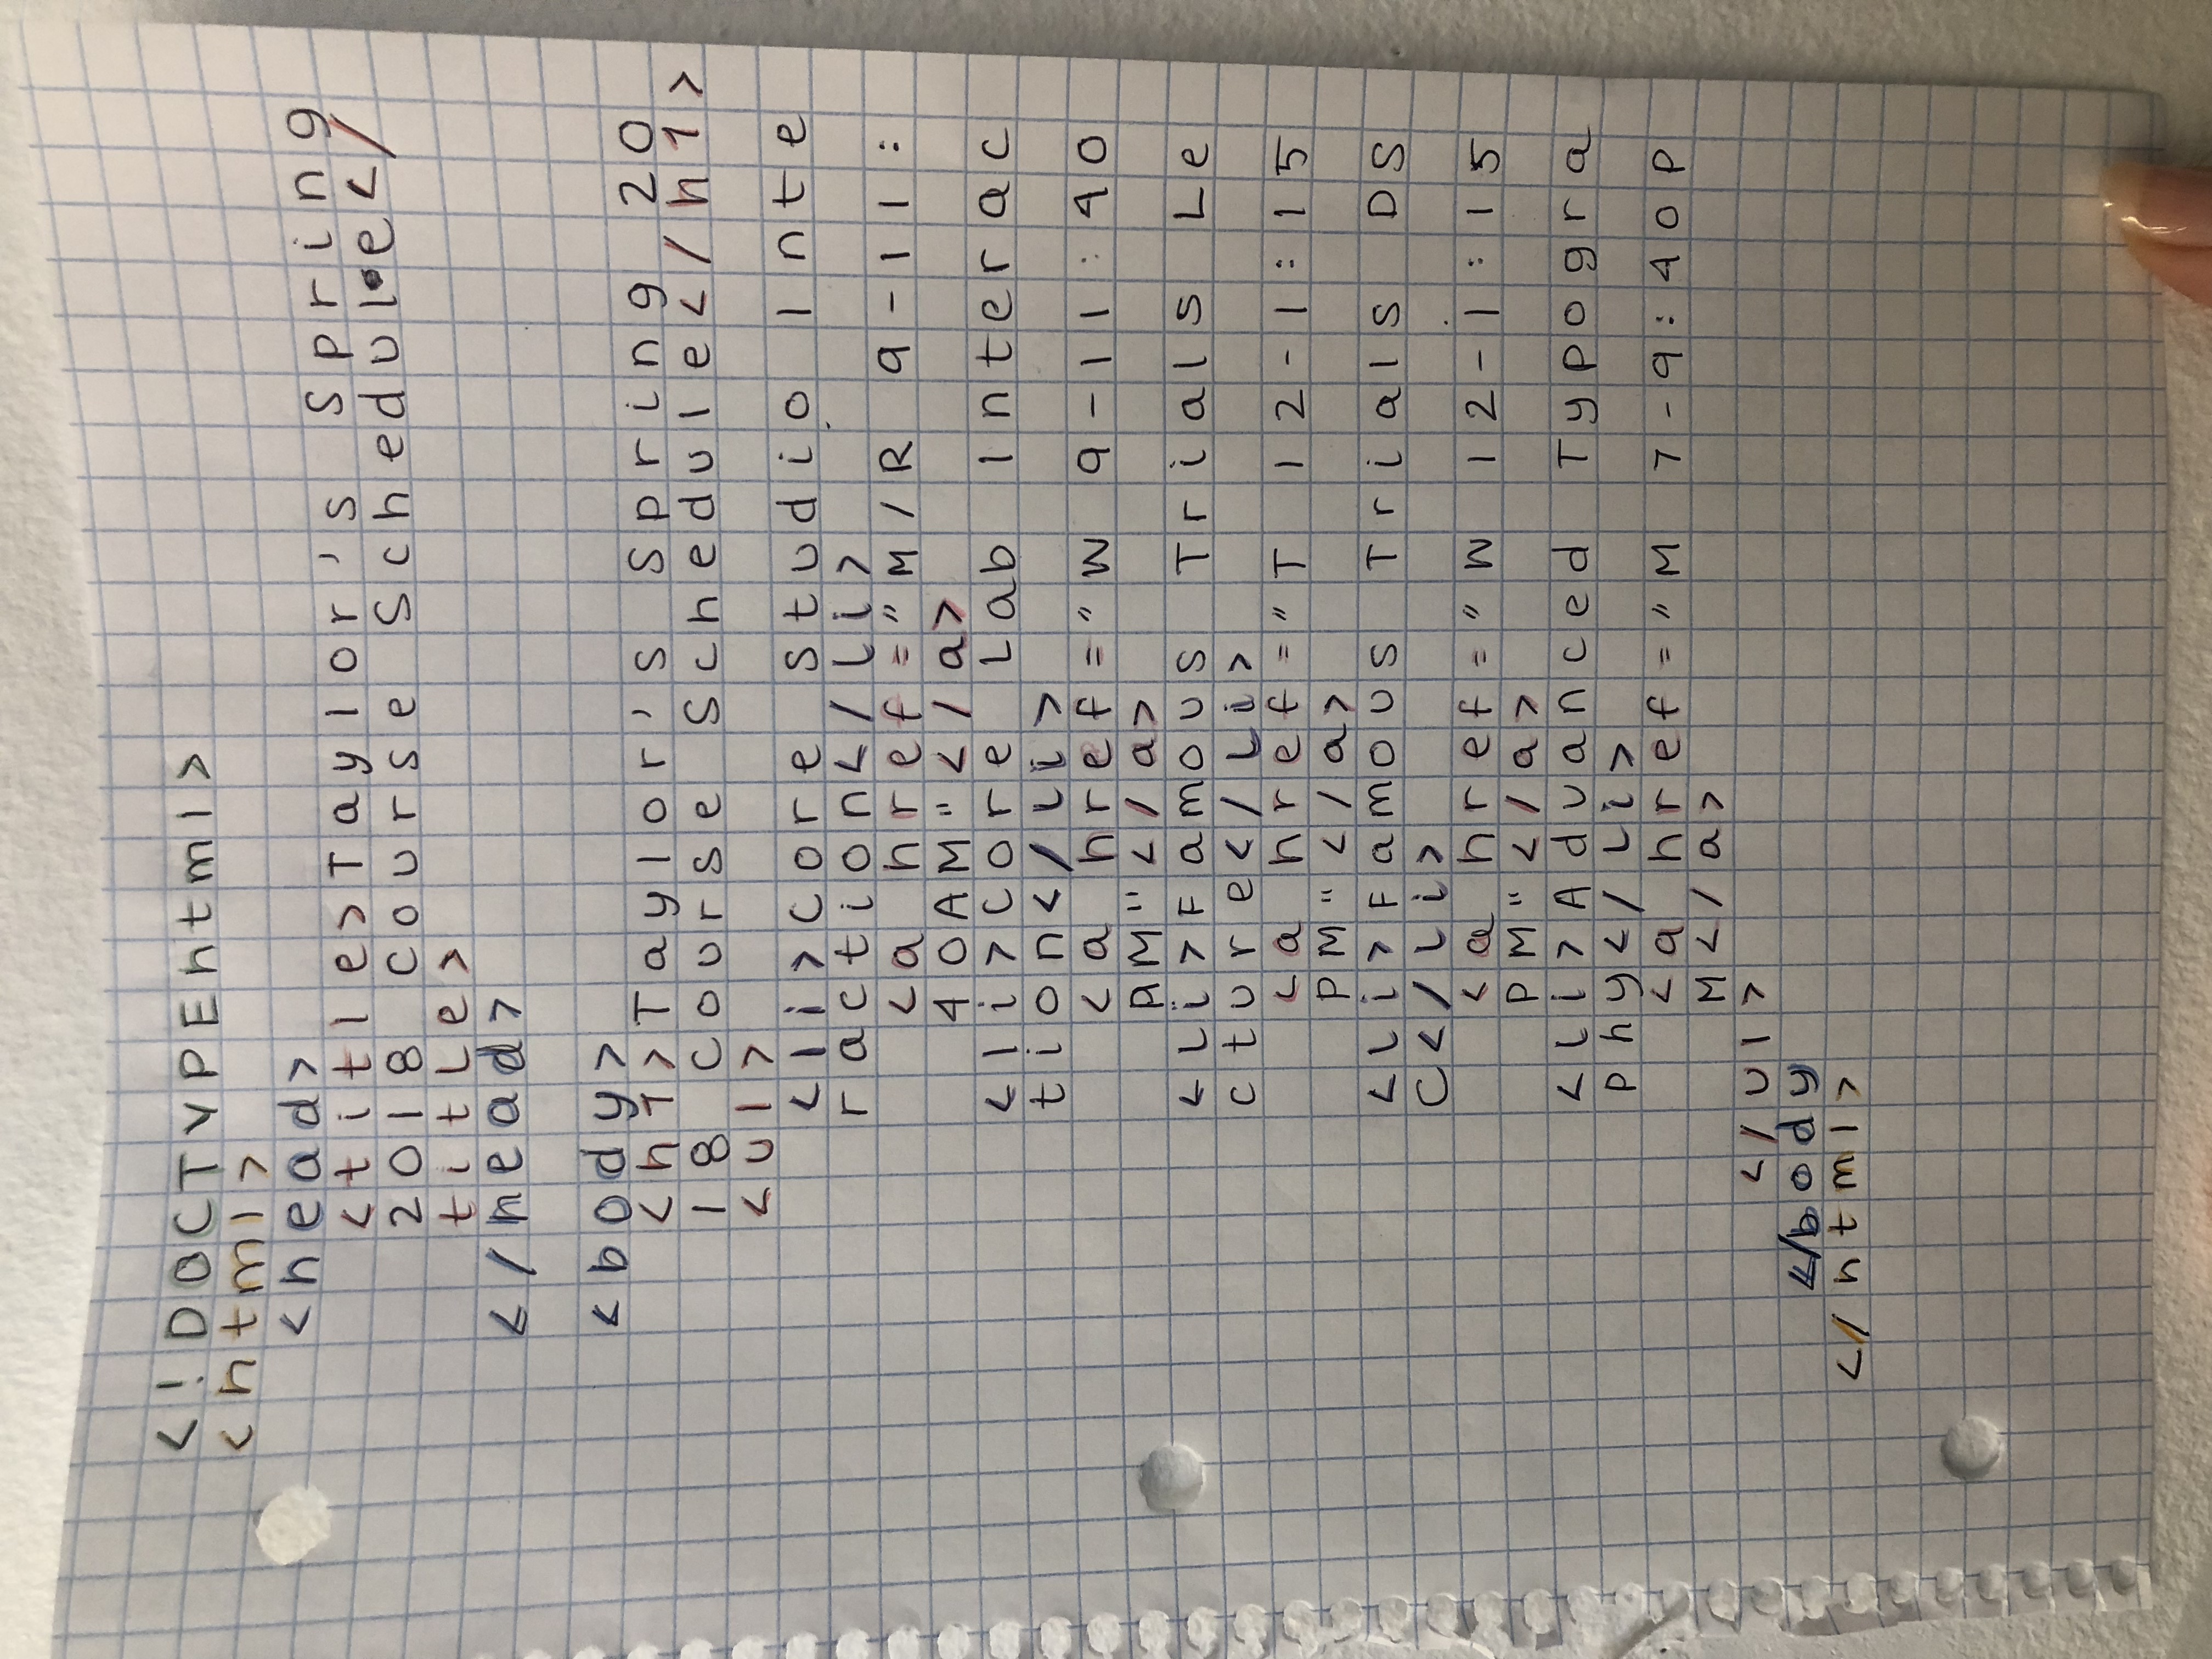 <!DOCTYPEhtml>
<html>
<head>
<title>Taylor's Spring
2018 Course Schedule</
title>
</head>
<body>
<h1>Taylor's Spring 20
18 Course Schedule</h1>
<ul>
<li>Core Studio Inte
raction</li>
<a href="M/R 9-11:
40AM"</a>
<li>Core Lab Interac
tion</li>
<a href="W 9-11:40
AM"</a>
<li>Famous Trials Le
cture</li>
<a href="T 12-1:15
PM"</a>
<li>Famous Trials DS
C</li>
<a href="W 12-1:15
PM"</a>
<li>Advanced Typogra
phy</li>
<a href="M 7-9:40P
M</a>
</ul>
</body
</html>